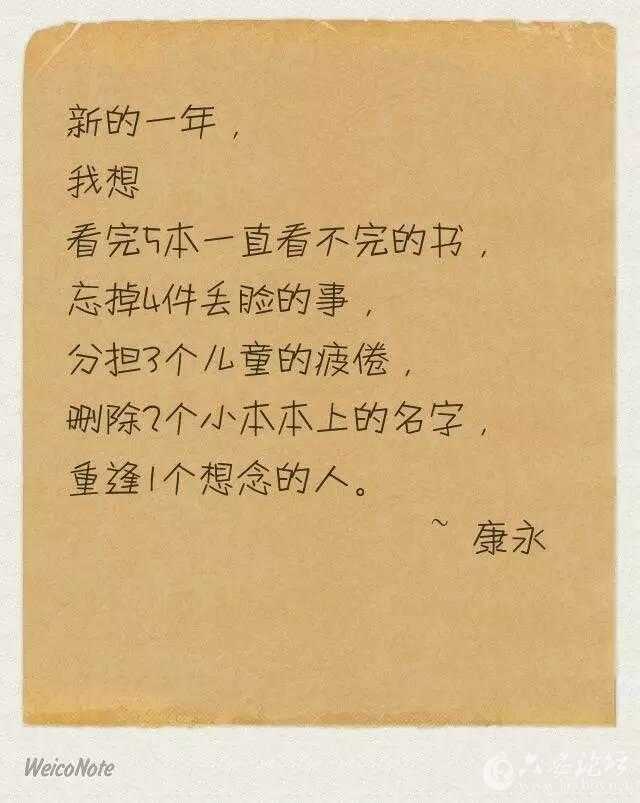 新的一年，
我想
看完5本一直看不完的书，
忘掉4件丢脸的事，
分担3个儿童的疲倦，
删除2个小本本上的名字，
重逢1个想念的人。
~ 康永
WeicoNote